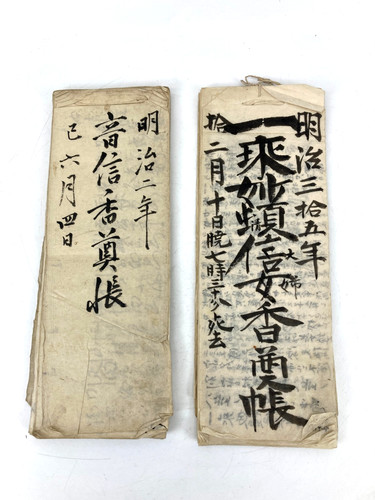 明治二年
音信香奠帳
巳六月四日
明治三拾五年
一乗妙頓信女香奠帳
大姉
拾二月十日暁七時三十分死去